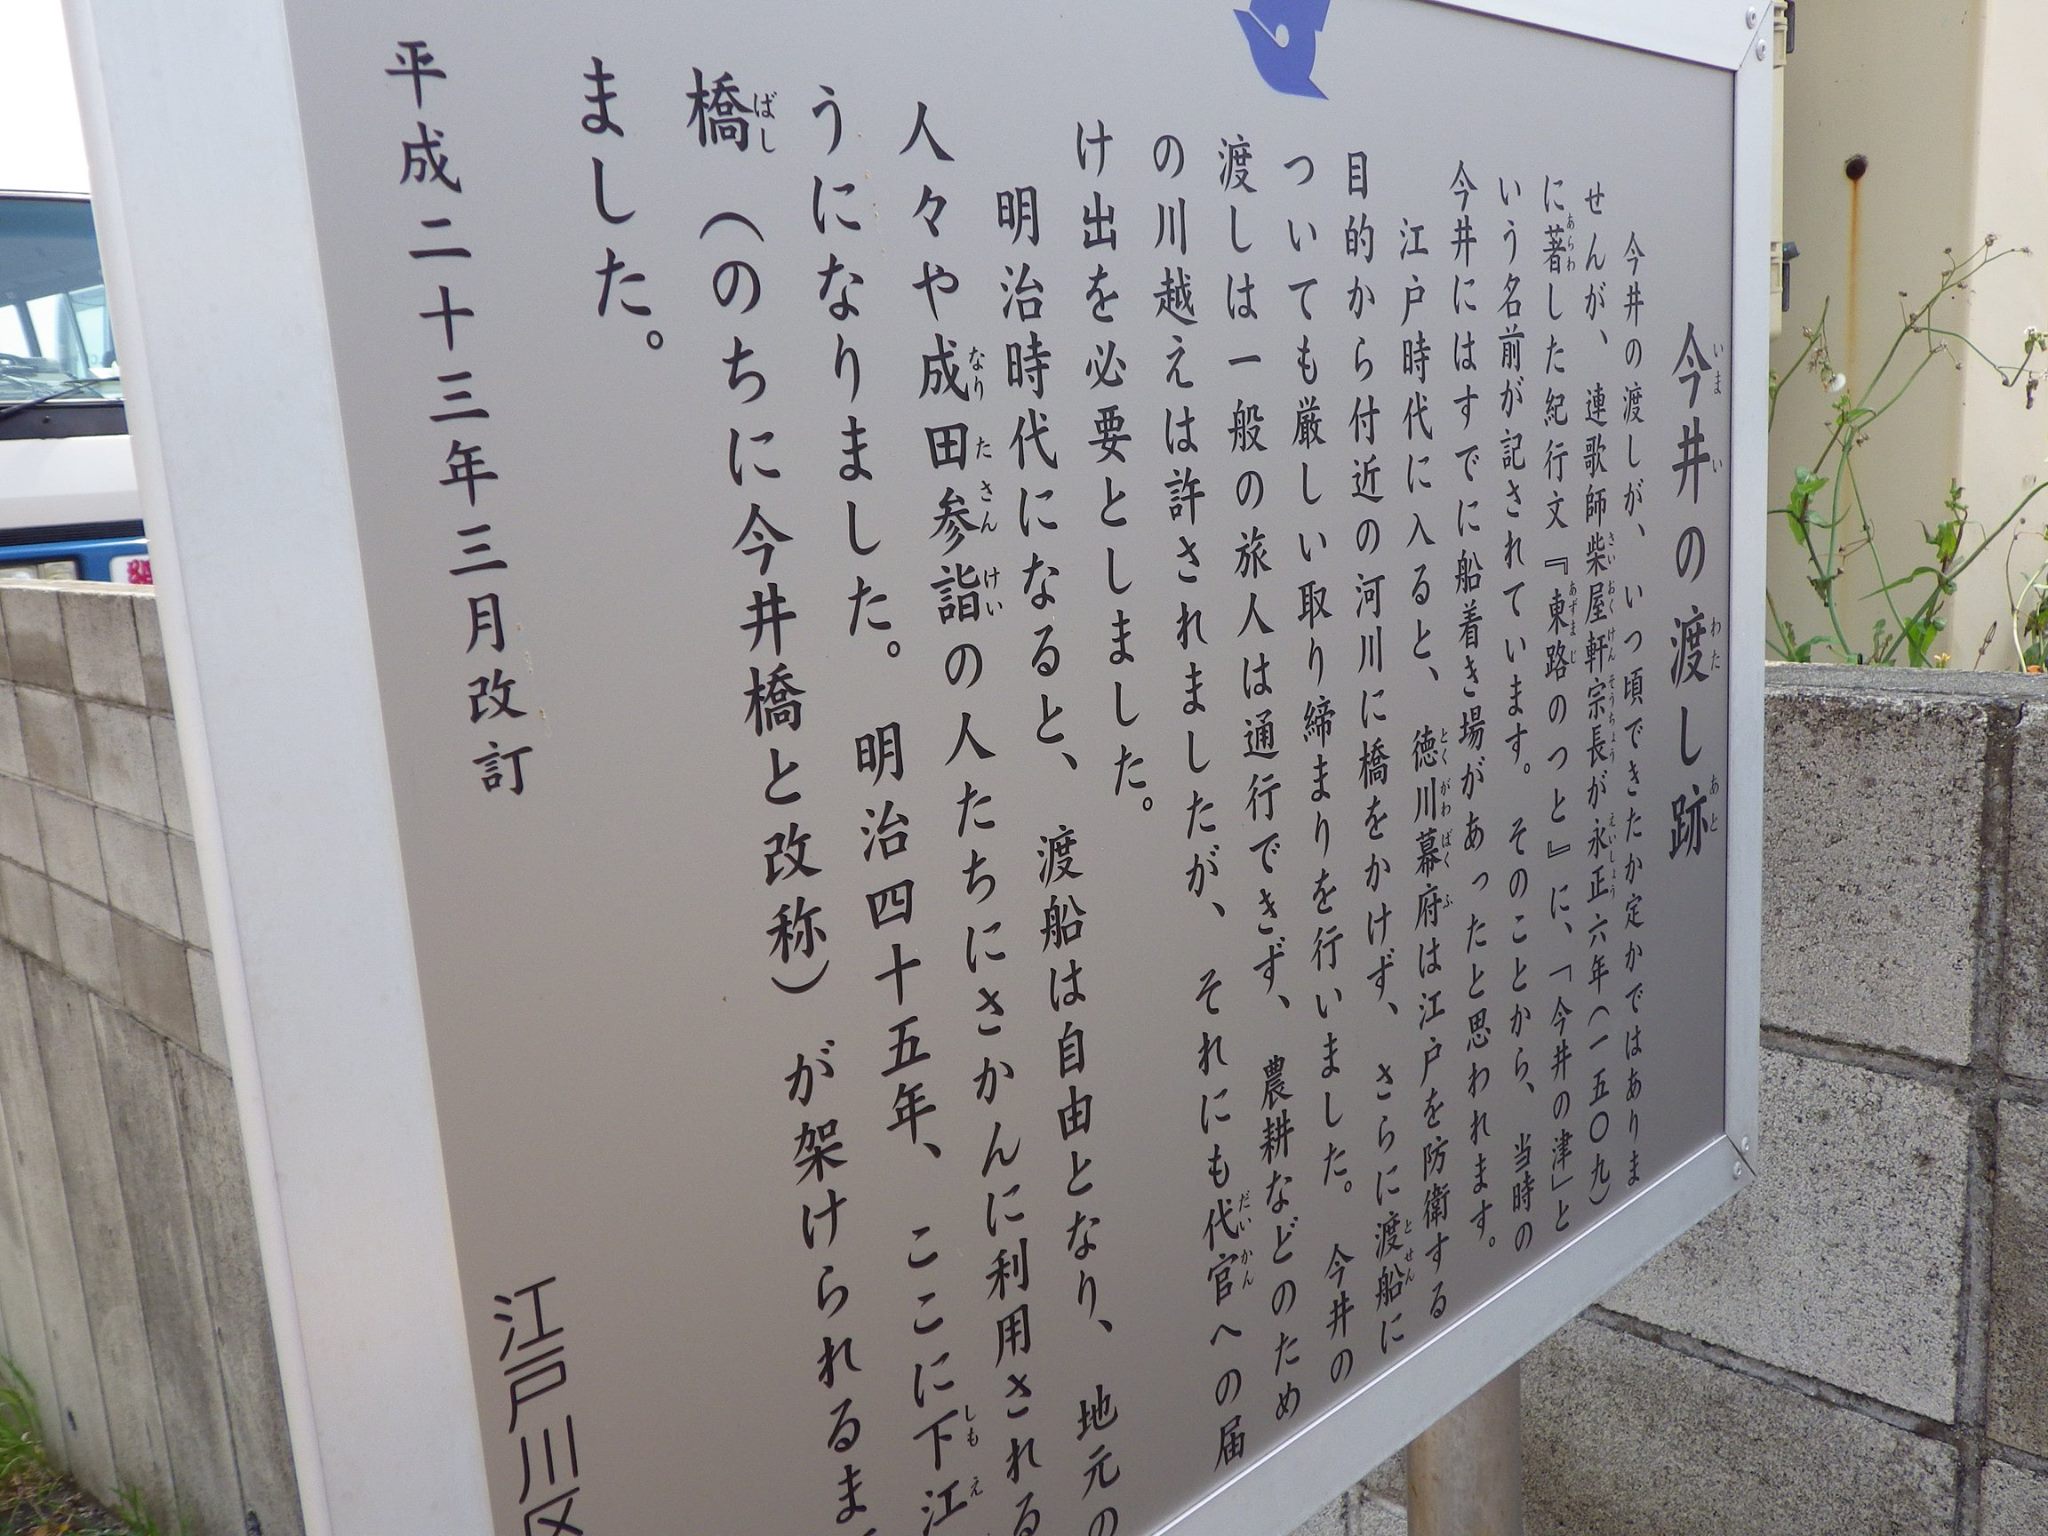 今井の渡し跡
今井の渡しが、いつ頃できたか定かではありま
せんが、連歌師柴屋軒宗長が永正六年(一五〇九)
に著した紀行文『東路のつと』に、「今井の津」と
いう名前が記されています。そのことから、当時の
今井にはすでに船着き場があったと思われます。
江戸時代に入ると、徳川幕府は江戸を防衛する
目的から付近の河川に橋をかけず、さらに渡船に
ついても厳しい取り締まりを行いました。今井の
渡しは一般の旅人は通行できず、農耕などのため
の川越えは許されましたが、それにも代官への届
け出を必要としました。
明治時代になると、渡船は自由となり、地元の
人々や成田参詣の人たちにさかんに利用される
うになりました。明治四十五年、ここに下江
橋(のちに今井橋と改称)が架けられるま
ました。
平成二十三年三月改訂
江戸川区